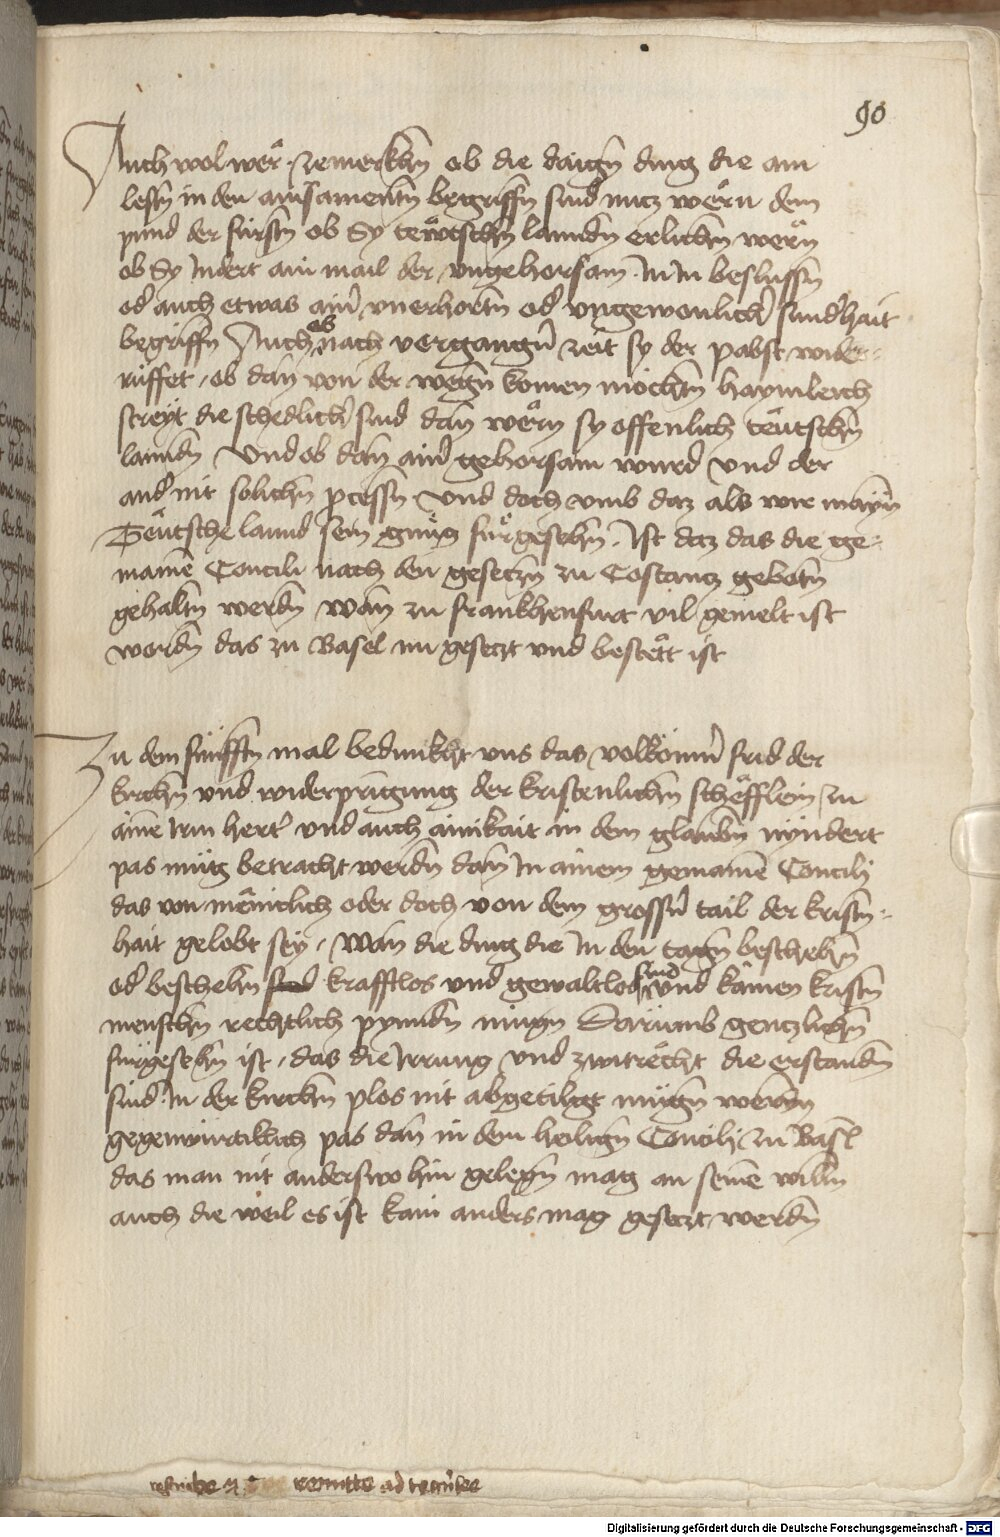 90
Auch wol wer zemerkhn ob die daign ding die am
lesn in den ainsamentn begriffn sind nutz wern dem
pund der fursn ob Sy tewtschn lanndn erlichn wern
ob Sy Indert ain mail der ungehorsam In In beslussn
od auch etwas ainr vnerhortn od ungewonlichr sundhait
begriffn Auch ob nach vergangnr zeit sy der pabst wider-
rüffet, ob dan von der wegn komen mochtn haymleich
streyt die schedlichr sind dan wern sy offenlich teutschn
lanndn Und ob dan ainr gehorsam wurd und der
andr nit solichn pcessn Und doch umb daz als wir mayn
Teutsche lannd sein gnug fürgesehn. Ist daz das die ge-
maine Concili nach den gesetzn zu Costantz gebotn
gehaltn werdn wan zu frankhenfurt vil gemelt ist
wordn das zu Basel nu gesetzt und bestett ist
Zu dem funfftn mal bedunkht uns das volkomnr frid der
kirchn und widerpringung der kristenlichn schefflein zu
aine irm hert und auch ainikait in dem glaubn nyndert
pas müg betracht werdn dan In ainem gemaine Concilj
das von menicklich oder doch von dem grossn tail der kristn-
hait gelobt sey, Wan die ding die In den tagn beschehn
od beschehn sind krafftlos und gewaltlos sind und kainen kristn
menschn rechtlich pyndn mugn Darumb gentzlichn
fürgesehn ist, das die Irrung und zwitrecht die erstandn
sind In der kirchn plos nit abgetilget mugn werdn
gegenwurtiklich pas dan in dem heilign Concilj zu Basl
das man nit anderswo hin gelegn mag an seine willn
auch die weil es ist kain anders mag gesetzt werdn
remitte ad
Digitalisierung gefördert durch die Deutsche Forschungsgemeinschaft - DFG